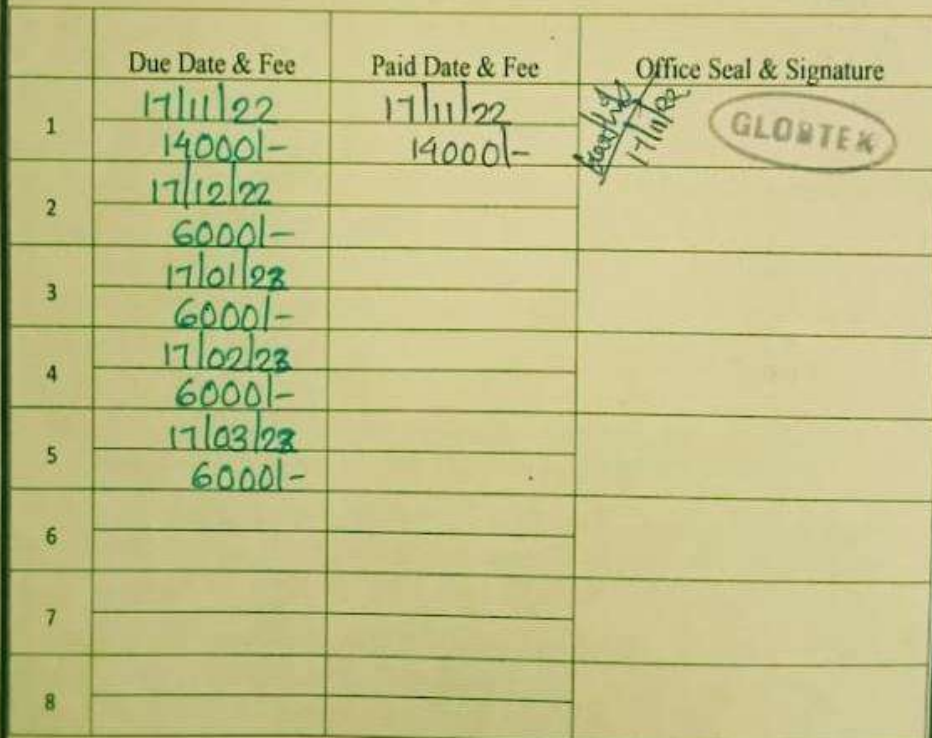 Due Date & Fee Paid Date & Fee Office Seal & Signature
1 17/11/22 17/11/22 17/11/22 GLOBTEK
14000/- 14000/-
2 17/12/22
6000/-
3 17/01/23
6000/-
4 17/02/23
6000/-
5 17/03/23
6000/-
6
7
8